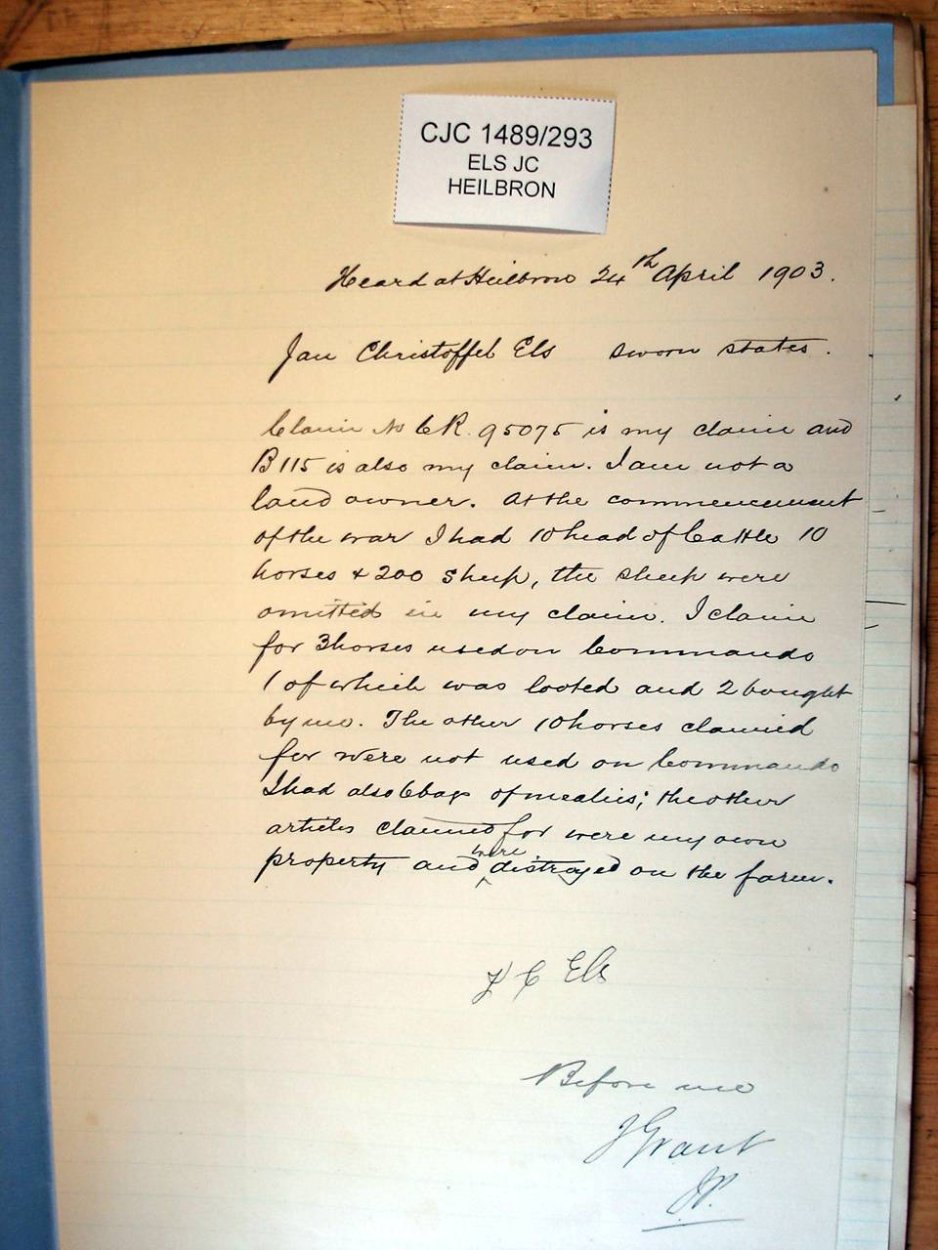 CJC 1489/293
ELS JC
HEILBRON
Heard at Heilbron 24th April 1903.
Jan Christoffel Els sworn states.
Claim No CR. 95075 is my claim and
B115 is also my claim. I am not a
land owner. At the commencement
of the war I had 10 head of Cattle 10
horses & 200 Sheep, the sheep were
omitted in my claim. I claim
for 3 horses used on Commando
1 of which was looted and 2 bought
by me. The other 10 horses claimed
for were not used on Commando
I had also 6 bags of mealies; the other
articles claimed for were my own
property and were distroyed on the farm.
J C Els
Before me
J Grant
JP.